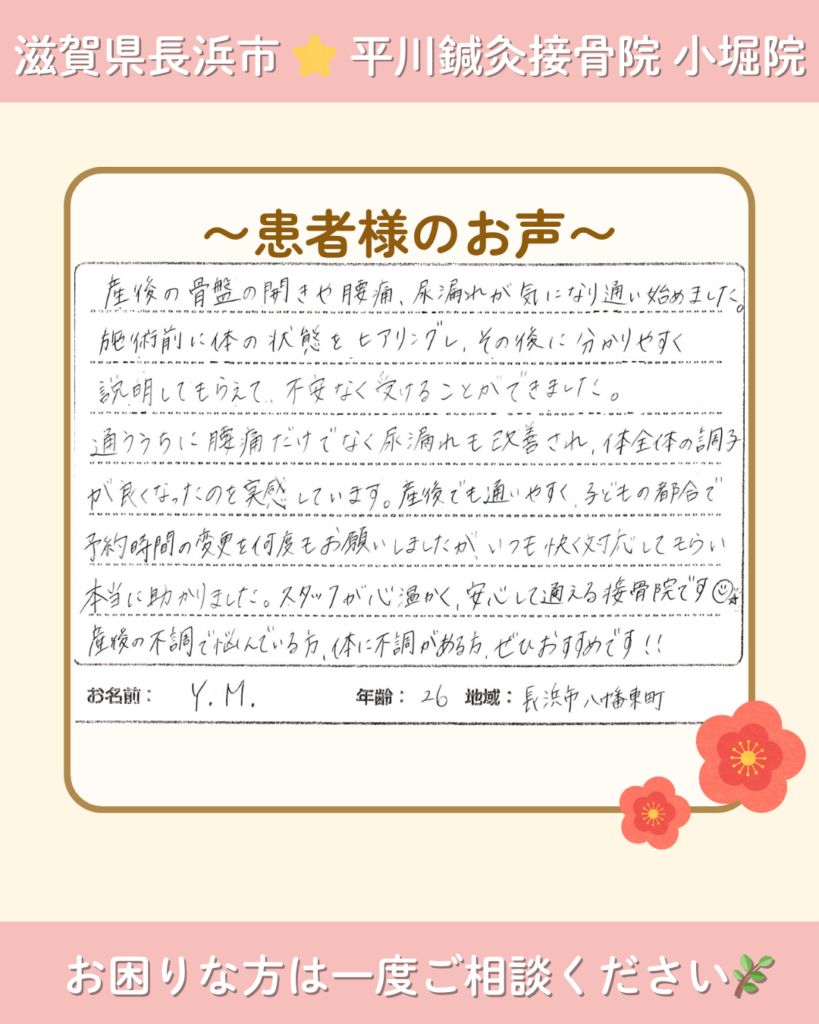 滋賀県長浜市⭐平川鍼灸接骨院 小堀院
～患者様のお声～
産後の骨盤の開きや腰痛、尿漏れが気になり通い始めました。
施術前に体の状態をヒアリングし、その後に分かりやすく
説明してもらえて、不安なく受けることができました。
通ううちに腰痛だけでなく尿漏れも改善され、体全体の調子
が良くなったのを実感しています。産後でも通いやすく、子どもの都合で
予約時間の変更を何度もお願いしましたが、いつも快く対応してもらい
本当に助かりました。スタッフが心温かく、安心して通える接骨院です☺
産後の不調で悩んでいる方、体に不調がある方、ぜひおすすめです!!
お名前: Y.M. 年齢: 26 地域: 長浜市八幡東町
お困りな方は一度ご相談ください🌿